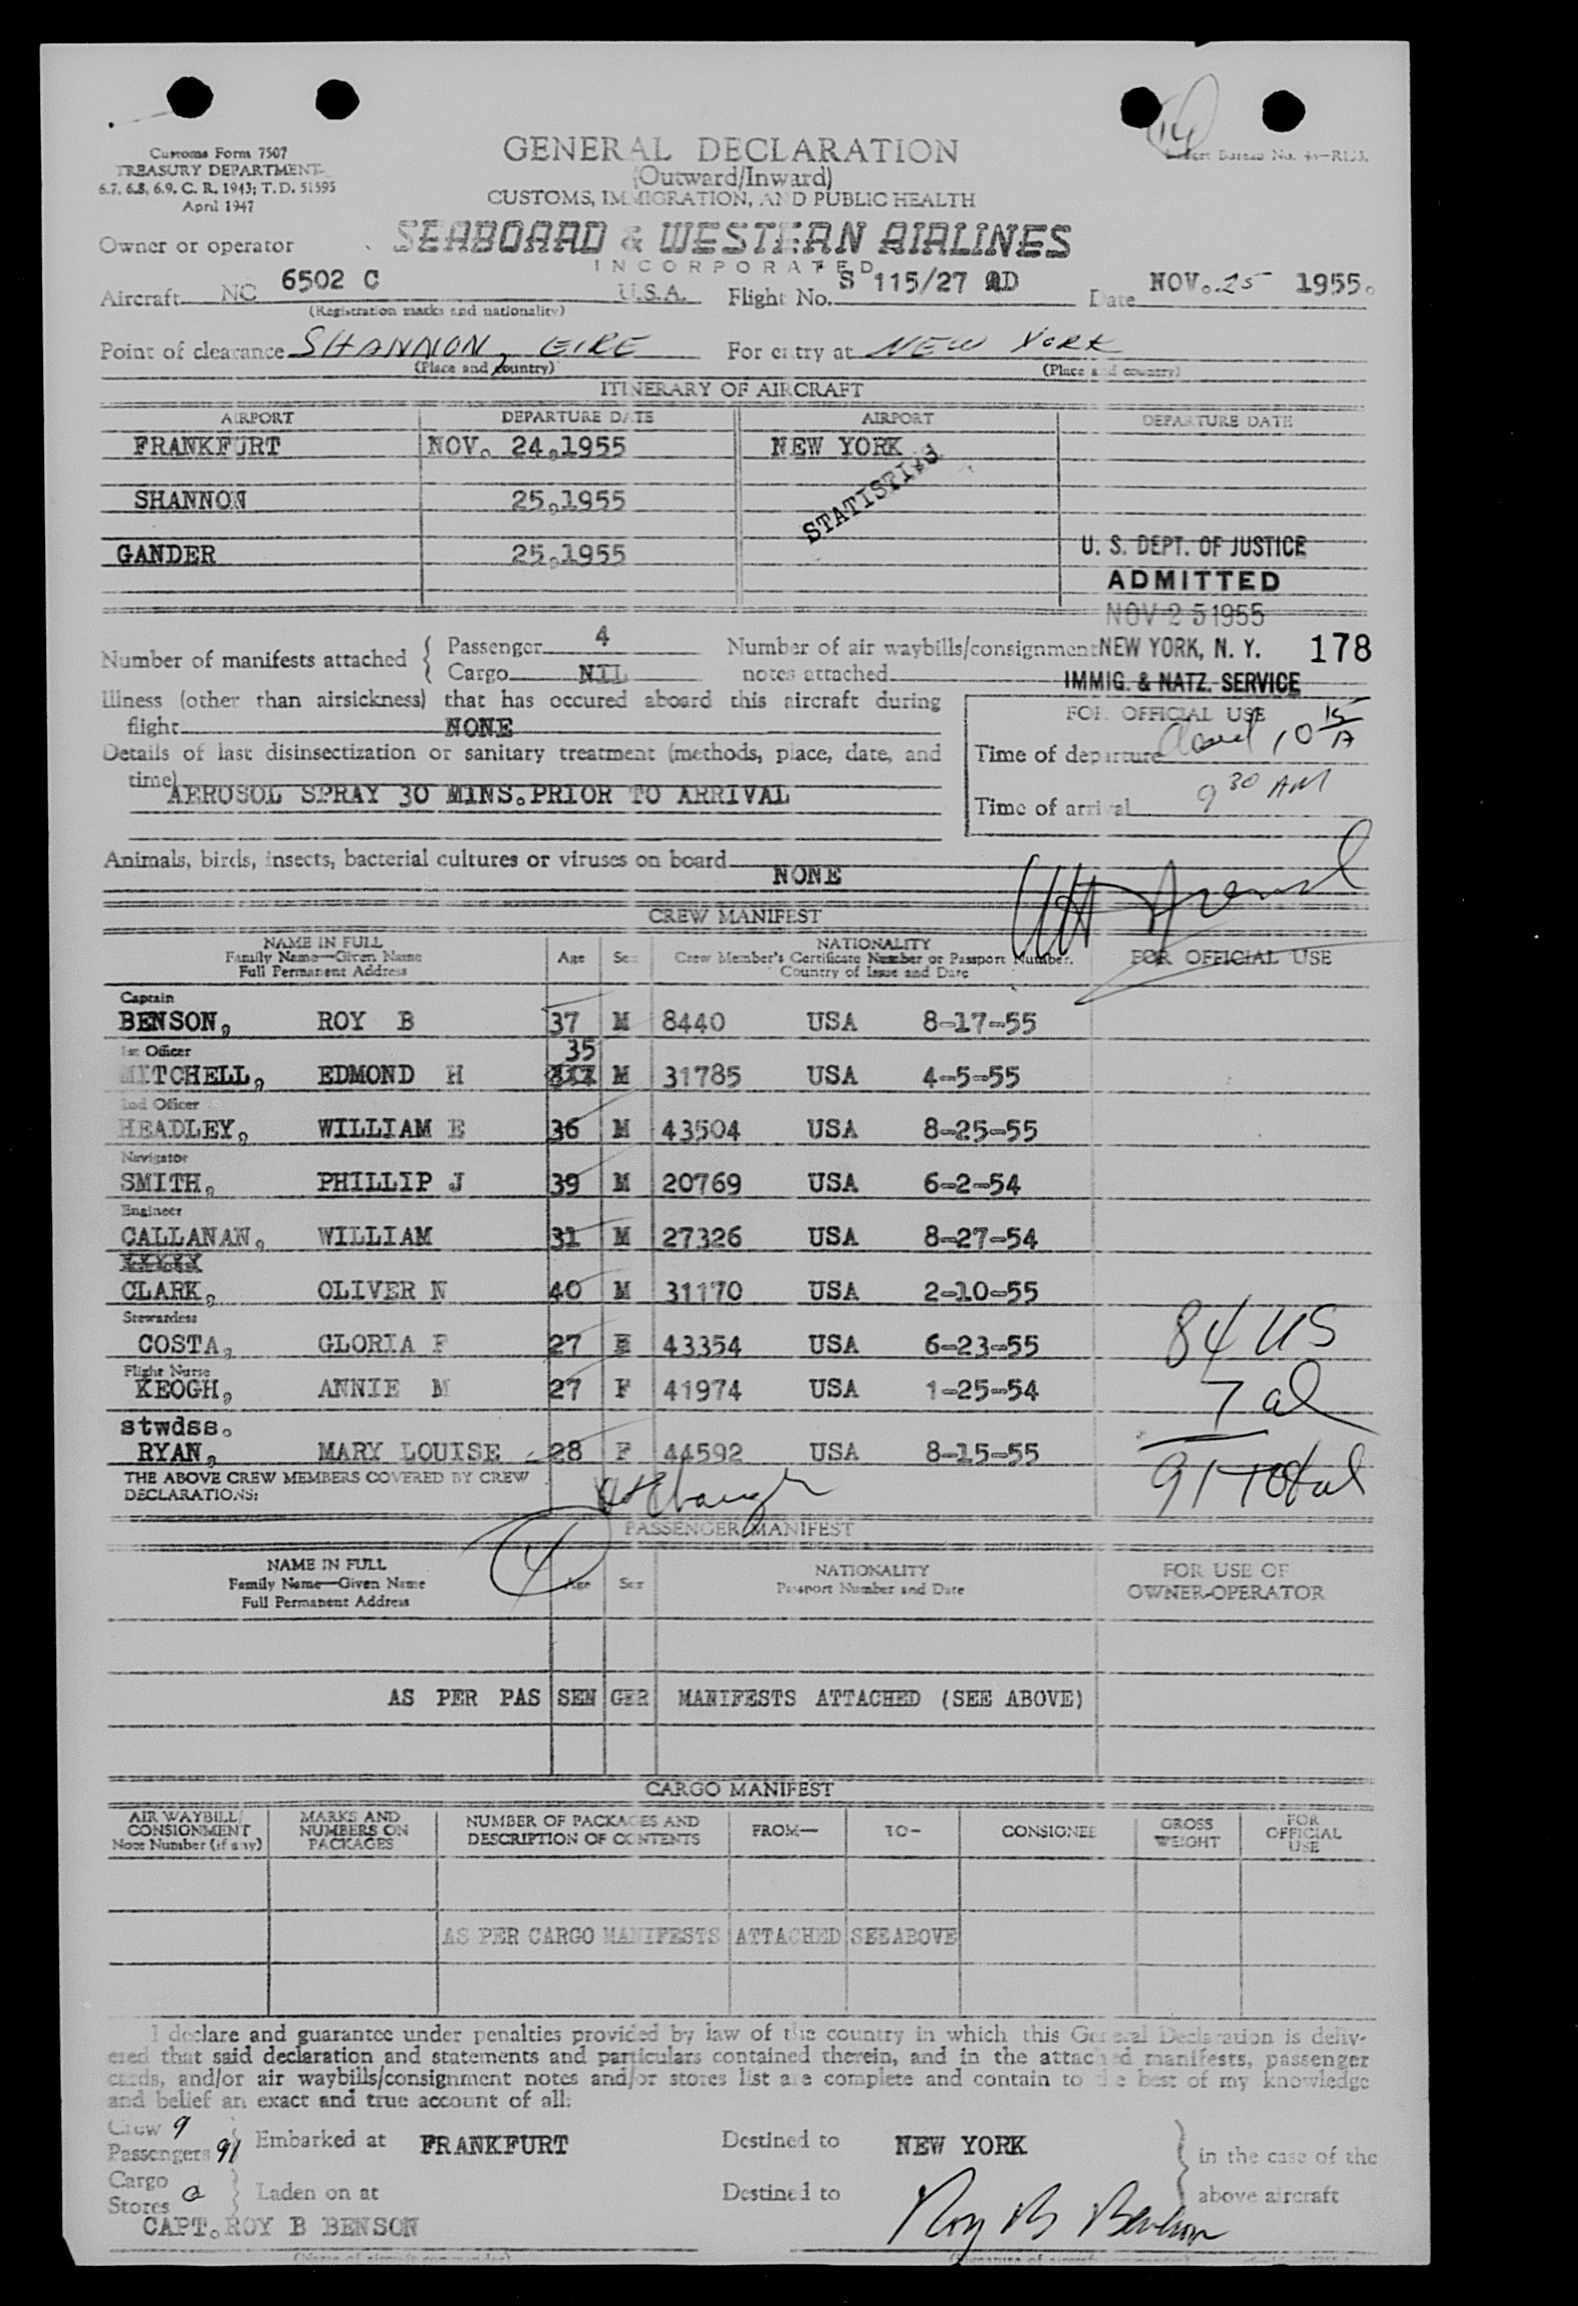 Customs Form 7507
TREASURY DEPARTMENT
6.7, 6.8, 6.9, C. R. 1943; T. D. 51595
April 1947
GENERAL DECLARATION
(Outward/Inward)
CUSTOMS, IMMIGRATION, AND PUBLIC HEALTH
Bureau No.
Owner or operator SEABOARD & WESTERN AIRLINES
INCORPORATED
Aircraft NC 6502 C U.S.A. Flight No. S 115/27 D Date NOV. 25 1955.
(Registration marks and nationality)
Point of clearance SHANNON, EIRE For entry at NEW YORK
(Place and country) (Place and country)
ITINERARY OF AIRCRAFT
AIRPORT DEPARTURE DATE AIRPORT DEPARTURE DATE
FRANKFURT NOV. 24,1955 NEW YORK
STATISTICS
SHANNON 25,1955
GANDER 25,1955
U. S. DEPT. OF JUSTICE
ADMITTED
NOV 25 1955
NEW YORK, N. Y. 178
IMMIG. & NATZ. SERVICE
Number of manifests attached { Passenger 4
Cargo NIL
Number of air waybills/consignment
notes attached
Illness (other than airsickness) that has occured aboard this aircraft during
flight NONE
Details of last disinsectization or sanitary treatment (methods, place, date, and
time) AEROSOL SPRAY 30 MINS.PRIOR TO ARRIVAL
FOR OFFICIAL USE
Time of departure 10 15 A
Time of arrival 9 30 AM
Animals, birds, insects, bacterial cultures or viruses on board NONE
CREW MANIFEST
NAME IN FULL
Family Name—Given Name
Full Permanent Address
Age Sex
NATIONALITY
Crew Member's Certificate Number or Passport Number.
Country of Issue and Date
FOR OFFICIAL USE
Captain
BENSON, ROY B 37 M 8440 USA 8-17-55
1st Officer 35
MITCHELL, EDMOND H M 31785 USA 4-5-55
2nd Officer
HEADLEY, WILLIAM E 36 M 43504 USA 8-25-55
Navigator
SMITH, PHILLIP J 39 M 20769 USA 6-2-54
Engineer
CALLANAN, WILLIAM 31 M 27326 USA 8-27-54
CLARK, OLIVER N 40 M 31170 USA 2-10-55
Stewardess
COSTA, GLORIA F 27 F 43354 USA 6-23-55
Flight Nurse
KEOGH, ANNIE M 27 F 41974 USA 1-25-54
stwdss.
RYAN, MARY LOUISE 28 F 44592 USA 8-15-55
84 US
7 al
91 Total
THE ABOVE CREW MEMBERS COVERED BY CREW
DECLARATIONS:
4
PASSENGER MANIFEST
NAME IN FULL
Family Name—Given Name
Full Permanent Address
Age Sex
NATIONALITY
Passport Number and Date
FOR USE OF
OWNER-OPERATOR
AS PER PASSENGER MANIFESTS ATTACHED (SEE ABOVE)
CARGO MANIFEST
AIR WAYBILL/
CONSIGNMENT
Note Number (if any)
MARKS AND
NUMBERS ON
PACKAGES
NUMBER OF PACKAGES AND
DESCRIPTION OF CONTENTS
FROM— TO— CONSIGNEE
GROSS
WEIGHT
FOR
OFFICIAL
USE
AS PER CARGO MANIFESTS ATTACHED SEE ABOVE
I declare and guarantee under penalties provided by law of the country in which this General Declaration is deliv-
ered that said declaration and statements and particulars contained therein, and in the attached manifests, passenger
cards, and/or air waybills/consignment notes and/or stores list are complete and contain to the best of my knowledge
and belief an exact and true account of all:
Crew 9
Passengers 91 } Embarked at FRANKFURT Destined to NEW YORK } in the case of the
Cargo
Stores } Laden on at Destined to above aircraft
CAPT.ROY B BENSON Roy B Benson
(Name of aircraft commander) (Signature of aircraft commander)